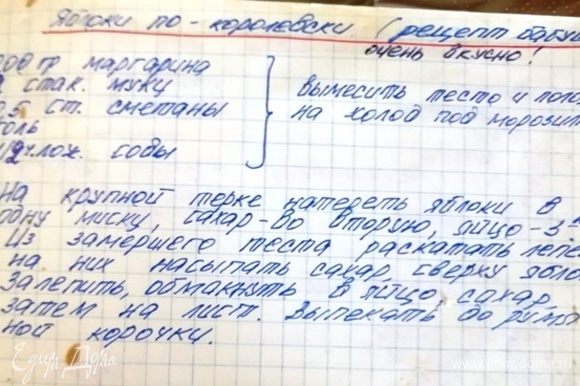 Яблоки по-королевски. (рецепт бабуш
очень вкусно!
00 гр маргарина
стак. муки
0,5 ст. сметаны
оль
1/2 ч. лож. соды
вымесить тесто и поло
на холод под морозил
На крупной терке натереть яблоки в
одну миску, сахар-во вторую, яйцо-3ю
Из замершего теста раскатать лепе
на них насыпать сахар, сверху ябло
Залепить, обмакнуть в яйцо, сахар,
затем на лист. Выпекать до румя
ной корочки.
Едим Дома
www.edimdoma.ru